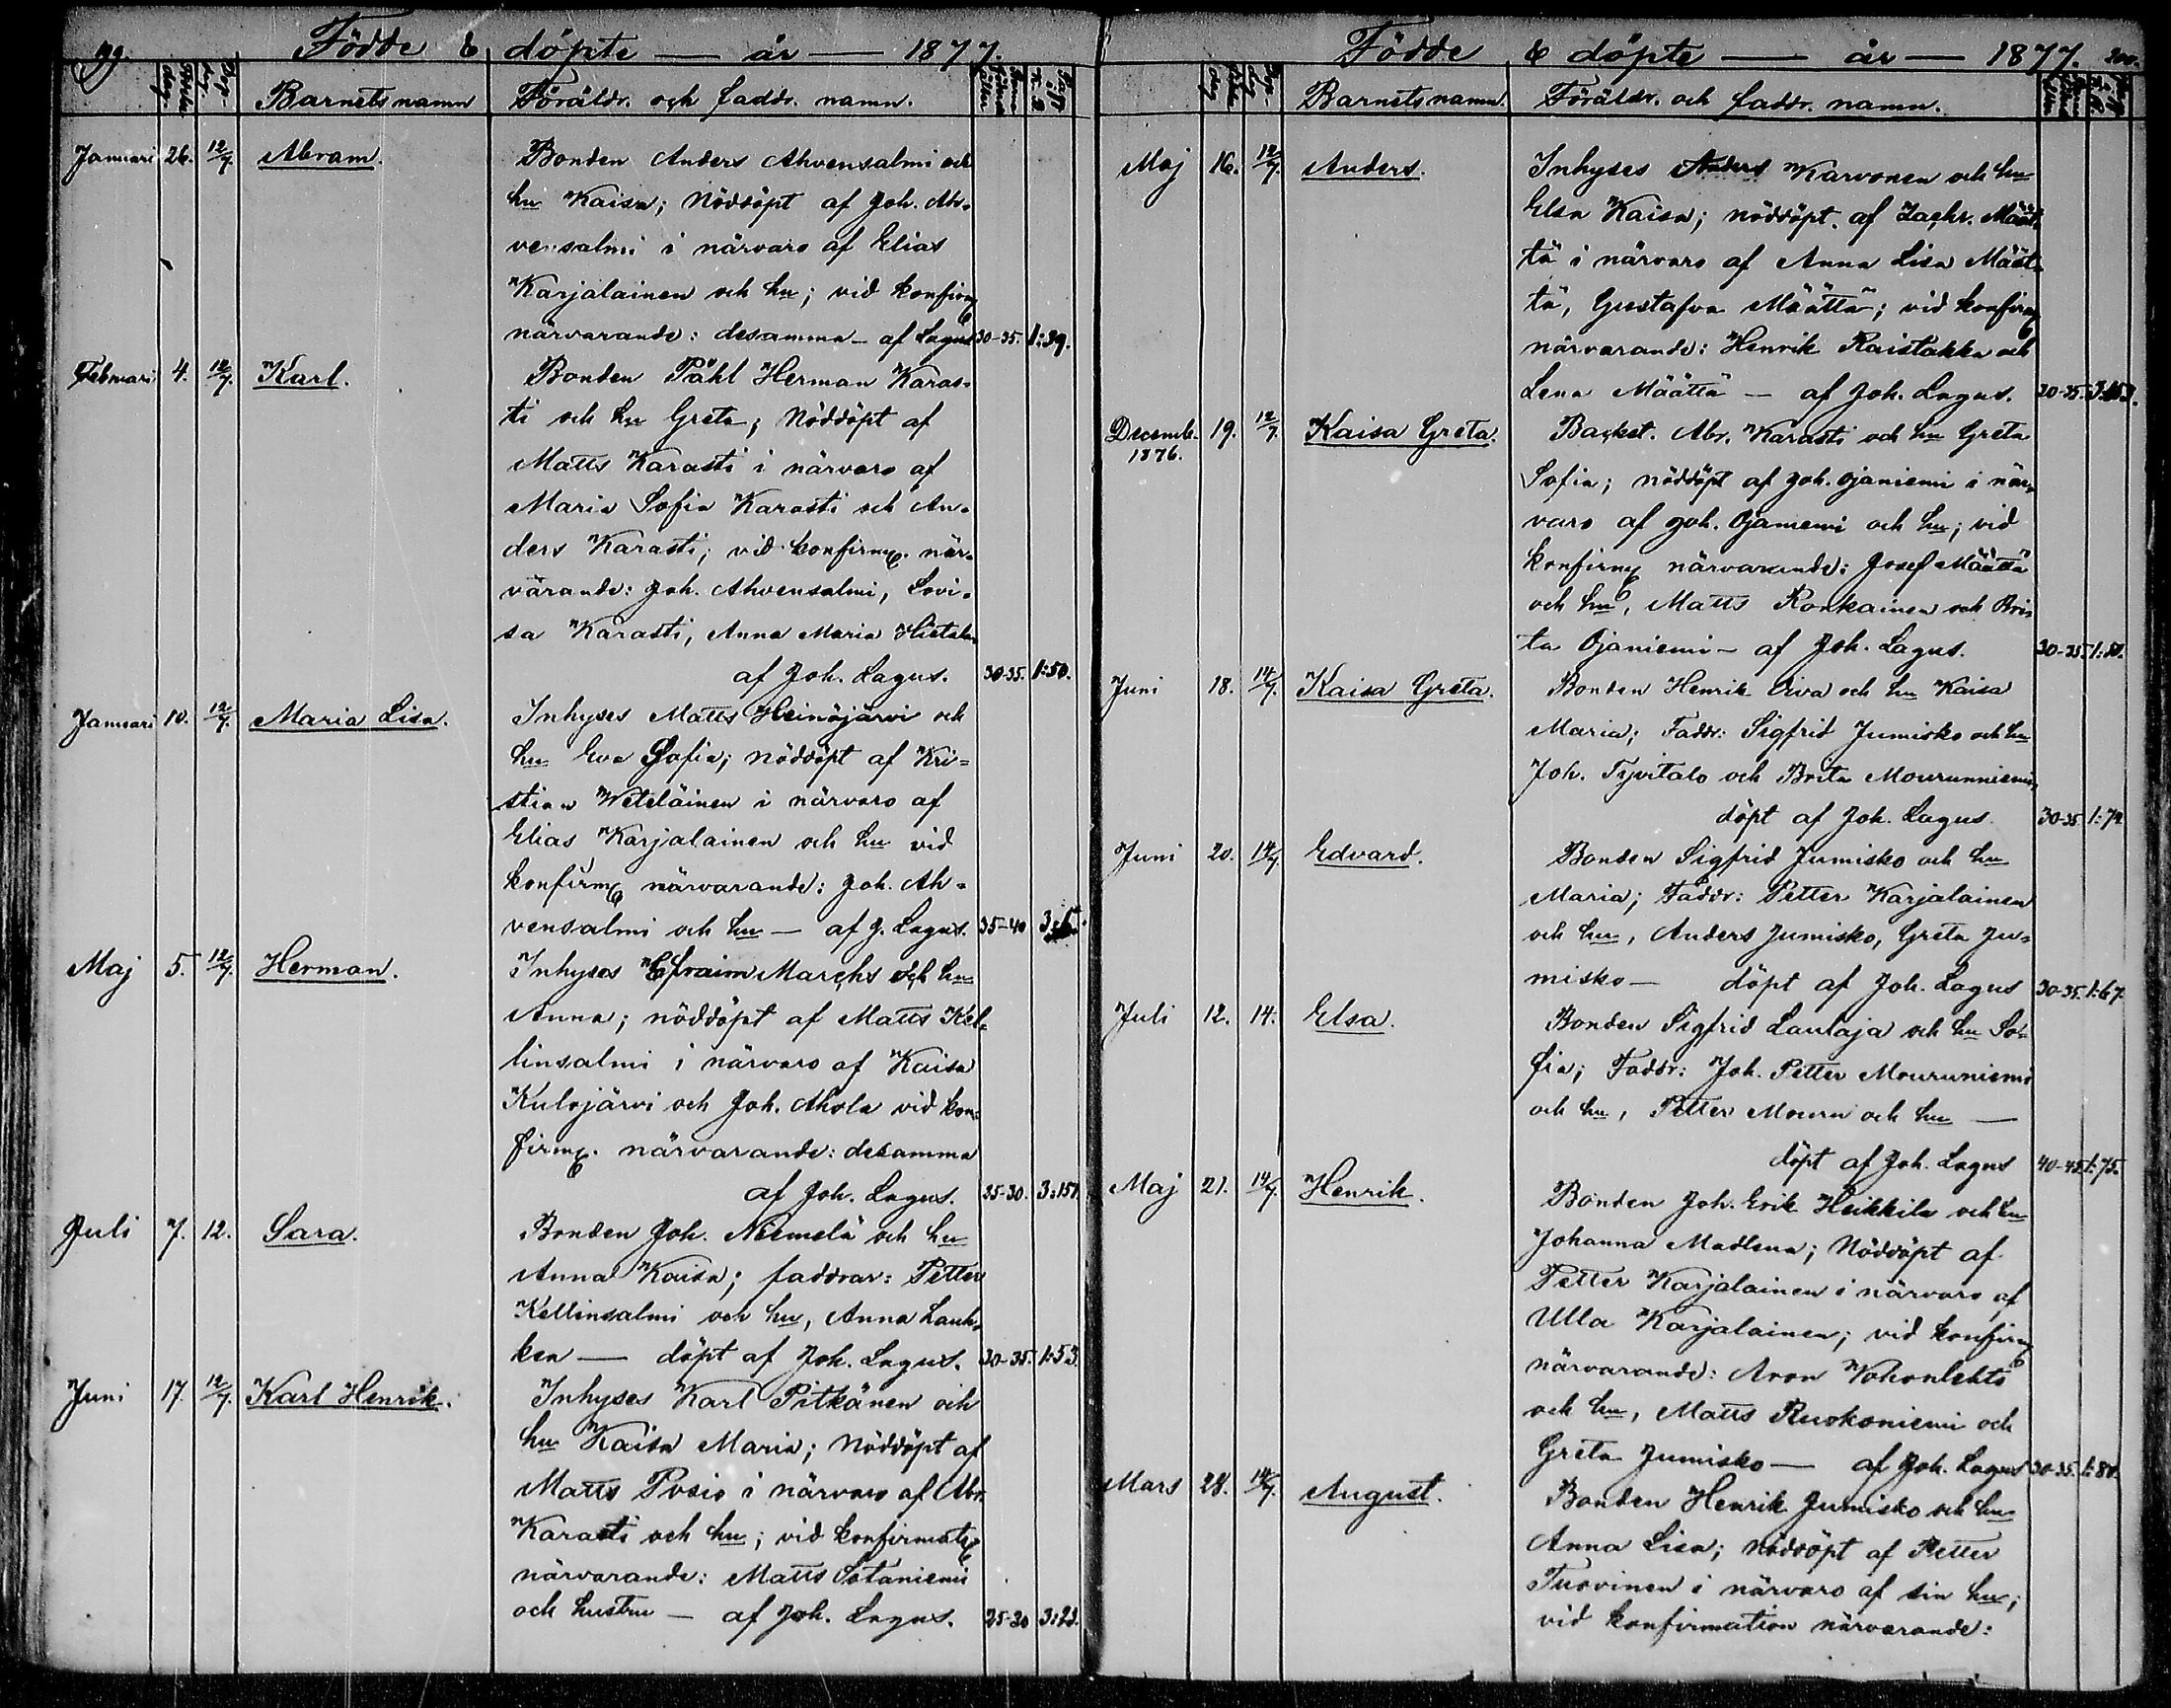 199.
Födde & döpte — år — 1877.
Dop-dag.
Barnets namn
Föräldr. och faddr. namn.
Januari 26. 12/7. Abram.
Bonden Anders Ahvensalmi och
hu Kaisa; Nöddöpt af Joh. Ah-
vensalmi i närvaro af Elias
Karjalainen och hu; vid konfirm
närvarande: desamma — af Lagus 30-35. 1:39.
Februari 4. 12/7. Karl.
Bonden Påhl Herman Karas-
ti och hu Greta; Nöddöpt af
Matts Karasti i närvaro af
Maria Sofia Karasti och An-
ders Karasti; vid konfirm. när-
varande: Joh. Ahvensalmi, Lovi-
sa Karasti, Anna Maria
af Joh. Lagus. 30-35. 1:50.
Januari 10. 12/7. Maria Lisa.
Inhyses Matts Heinöjärvi och
hu Eva Sofia; nöddöpt af Kri-
stian Weteläinen i närvaro af
Elias Karjalainen och hu vid
konfirm närvarande: Joh. Ah-
vensalmi och hu — af J. Lagus. 35-40
Maj 5. 12/7. Herman.
Inhyses Efraim Marchs och hu
Anna; nöddöpt af Matts Kel-
linsalmi i närvaro af Kaisa
Kulojärvi och Joh. Ahola vid kon-
firm. närvarande: desamma
af Joh. Lagus. 25-30. 3:151.
Juli 7. 12. Sara.
Bonden Joh. Niemelä och hu
Anna Kaisa; faddrar: Petter
Kellinsalmi och hu, Anna Lauk-
ken — döpt af Joh. Lagus. 30-35. 1:53.
Juni 17. 12/7. Karl Henrik.
Inhyses Karl Pitkänen och
hu Kaisa Maria; Nöddöpt af
Matts Posio i närvaro af Abr.
Karasti och hu; vid konfirmat
närvarande: Matts Sotaniemi
och hustru — af Joh. Lagus. 25-30 3:23.
Födde & döpte — år — 1877. 200.
Barnets namn. Föräldr. och faddr. namn.
Maj 16. 12/7. Anders.
Inhyses Anders Karvonen och hu
Elsa Kaisa; nöddöpt. af Zachr. Määt-
tä i närvaro af Anna Lisa Määt-
tä, Gustafva Määttä; vid konfirm
närvarande: Henrik Raistakka och
Lena Määttä — af Joh. Lagus. 30-35.
Decemb. 1876. 19. 12/7. Kaisa Greta.
Backst. Abr. Karasti och hu Greta
Sofia; nöddöpt af Joh. Ojaniemi i när-
varo af Joh. Ojaniemi och hu; vid
konfirm närvarande: Josef Määttä
och hu, Matts Ronkainen och Bri-
ta Ojaniemi — af Joh. Lagus. 30-35. 1:50.
Juni 18. 14/7. Kaisa Greta.
Bonden Henrik Oiva och hu Kaisa
Maria; Faddr: Sigfrid Jumisko och hu
Joh. Tyvitalo och Brita Mourunniemi,
döpt af Joh. Lagus. 30-35.
Juni 20. 14/7. Edvard.
Bonden Sigfrid Jumisko och hu
Maria; Faddr: Petter Karjalainen
och hu, Anders Jumisko, Greta Ju-
misko — döpt af Joh. Lagus 30-35. 1:67.
Juli 12. 14. Elsa.
Bonden Sigfrid Laulaja och hu So-
fia; Faddr: Joh. Petter Mouruniemi
och hu, Petter Mouru och hu —
döpt af Joh. Lagus 40-45. 1:75.
Maj 21. 14/7. Henrik.
Bonden Joh. Erik Heikkila och hu
Johanna Madlena; Nöddöpt af
Petter Karjalainen i närvaro af
Ulla Karjalainen; vid konfirm
närvarande: Aron Kohonlehto
och hu, Matts Ruokoniemi och
Greta Jumisko — af Joh. Lagus 30-35. 1:80.
Mars 28. 14/7. August.
Bonden Henrik Jumisko och hu
Anna Lisa; nöddöpt af Petter
Tuovinen i närvaro af sin hu;
vid konfirmation närvarande: